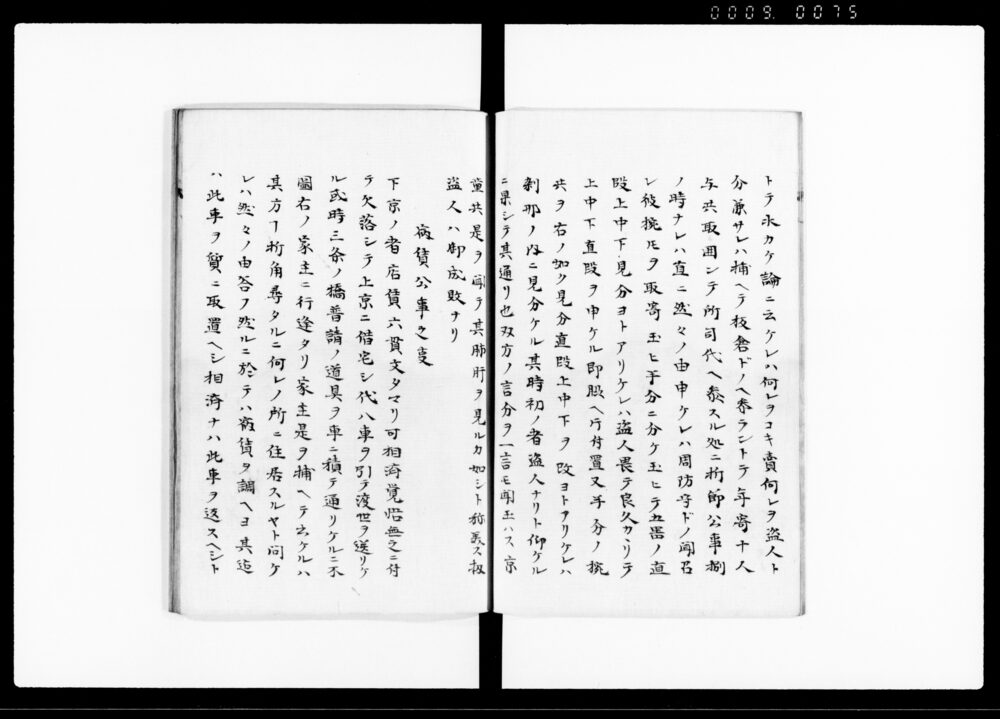 0009. 0075
トテ水カケ論ニ云ケレハ何レヲコキ賣何レヲ盗人ト
分兼サレハ捕ヘテ板倉ドノヘ参ラントテ年寄十人
与共取囲ンテ所司代ヘ参スル処ニ折節公事捌
ノ時ナレハ直ニ然々ノ由申ケレハ周防守ドノ聞召
レ彼挽モヲ取寄玉ヒ手分ニ分ケ玉ヒテ五器ノ直
段上中下見分ヨトアリケレハ盗人畏テ良久カヽリテ
上中下直段ヲ申ケル即股ヘ片付置又手分ノ挽
共ヲ右ノ如ク見分直段上中下ヲ改ヨトアリケレハ
刹那ノ内ニ見分ケル其時初ノ者盗人ナリト仰ケル
ニ果シテ其通リ也双方ノ言分ヲ一言モ聞玉ハス京
童共是ヲ聞テ其肺肝ヲ見ルカ如シト称美ス扨
盗人ハ御成敗ナリ
宿賃公事之㕝
下京ノ者店賃六貫文タマリ可相済覚悟無之ニ付
テ欠落シテ上京ニ借宅シ代八車ヲ引テ渡世ヲ送リケ
ル或時三条ノ橋普請ノ道具ヲ車ニ積テ通リケルニ不
圖右ノ家主ニ行逢タリ家主是ヲ捕ヘテ云ケルハ
其方ヿ折角尋タルニ何レノ所ニ住居スルヤト問ケ
レハ然々ノ由答フ然ルニ於テハ宿賃ヲ調ヘヨ其迄
ハ此車ヲ質ニ取置ヘシ相済ナハ此車ヲ返スヘシト